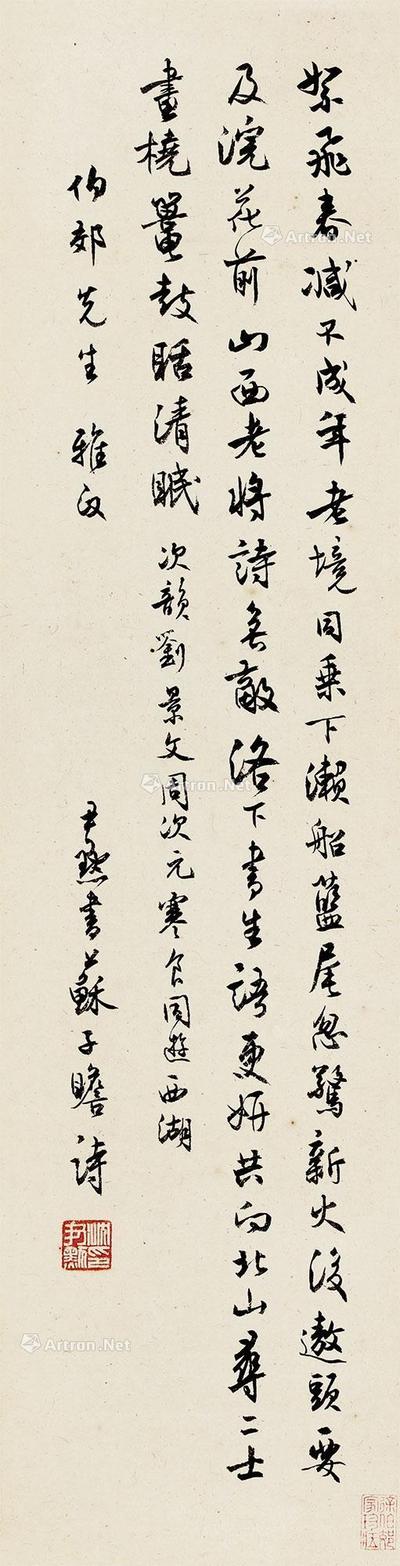 絮飛春減不成年老境同乘下瀨船藍尾忽驚新火後遨頭要
及浣花前山西老將詩無敵洛下書生語更妍共向北山尋二士
畫橈鼉鼓聒清眠 次韻劉景文周次元寒食同遊西湖
伯郊先生雅正
尹默書蘇子瞻詩
沈尹默印
徐伯郊
Artron.Net
Artron.Net
Artron.Net